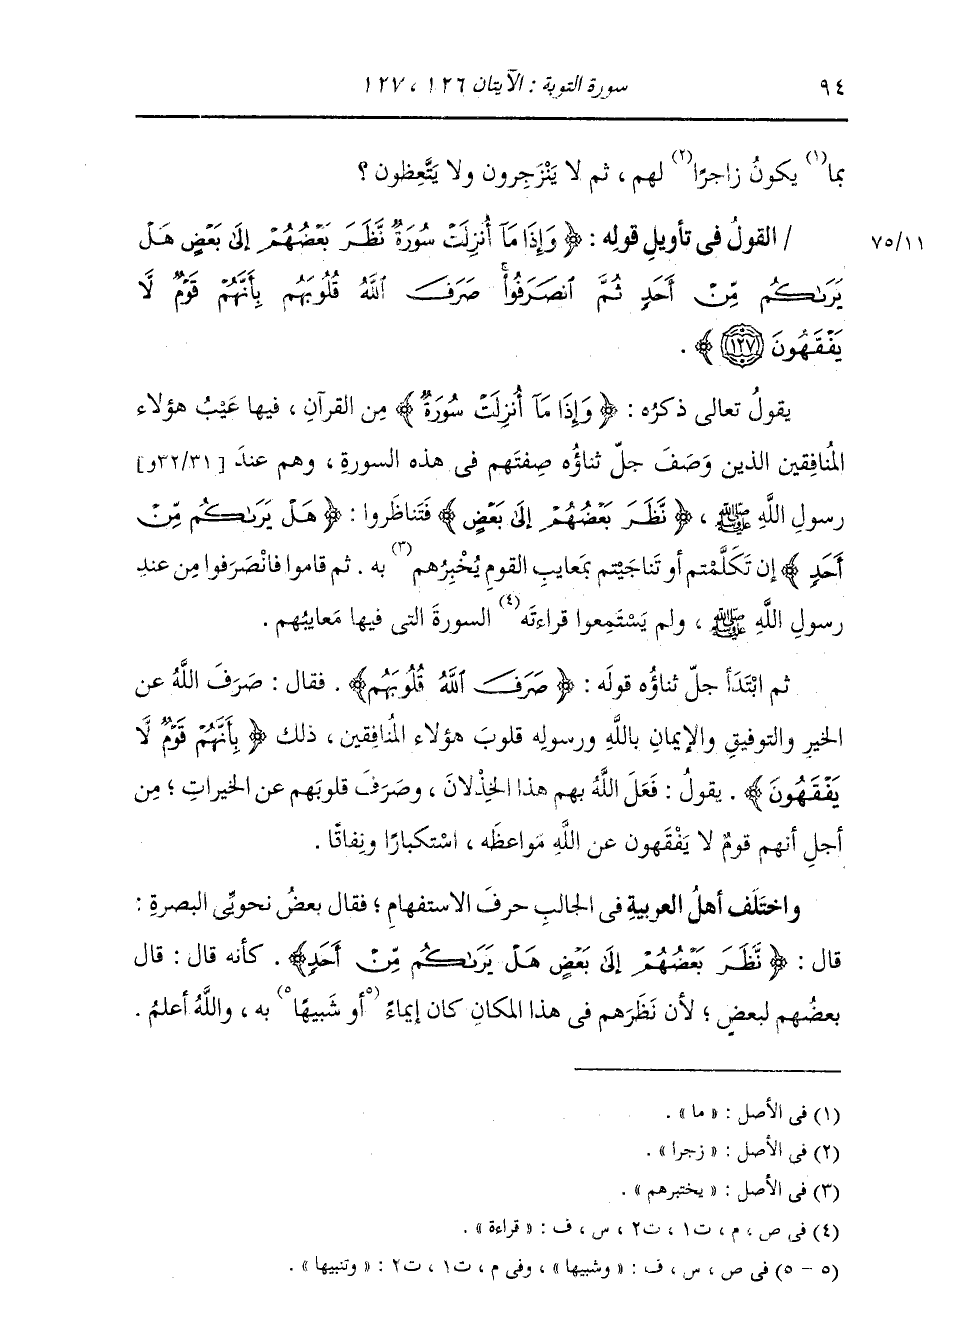 ٩٤ سورة التوبة : الآيتان ١٢٦ ، ١٢٧
بما(١) يكونُ زاجرًا(٢) لهم ، ثم لا يَنْزَجِرون ولا يَتَّعِظون ؟
٧٥/١١ / القولُ فى تأويلِ قوله : ﴿ وَإِذَا مَآ أُنزِلَتْ سُورَةٌ نَّظَرَ بَعْضُهُمْ إِلَىٰ بَعْضٍ هَلْ
يَرَىٰكُم مِّنْ أَحَدٍ ثُمَّ ٱنصَرَفُوا۟ ۚ صَرَفَ ٱللَّهُ قُلُوبَهُم بِأَنَّهُمْ قَوْمٌ لَّا
يَفْقَهُونَ ١٢٧ ﴾ .
يقولُ تعالى ذكرُه : ﴿ وَإِذَا مَآ أُنزِلَتْ سُورَةٌ ﴾ مِن القرآنِ ، فيها عَيْبُ هؤلاء
المُنافِقين الذين وَصَفَ جلّ ثناؤُه صِفتَهم فى هذه السورةِ ، وهم عندَ [٣٢/٣١و]
رسولِ اللَّهِ ﷺ ، ﴿ نَّظَرَ بَعْضُهُمْ إِلَىٰ بَعْضٍ ﴾ فَتَناظَروا : ﴿ هَلْ يَرَىٰكُم مِّنْ
أَحَدٍ ﴾ إن تَكَلَّمْتم أو تَناجَيْتم بمَعايبِ القومِ يُخْبِرُهم(٣) به . ثم قاموا فانْصَرَفوا مِن عندِ
رسولِ اللَّهِ ﷺ ، ولم يَسْتَمِعوا قراءتَه(٤) السورةَ التى فيها مَعايبُهم .
ثم ابْتَدَأ جلّ ثناؤُه قولَه : ﴿ صَرَفَ ٱللَّهُ قُلُوبَهُم﴾ . فقال : صَرَفَ اللَّهُ عن
الخيرِ والتوفيقِ والإيمانِ باللَّهِ ورسولِه قلوبَ هؤلاء المُنافِقين ، ذلك ﴿ بِأَنَّهُمْ قَوْمٌ لَّا
يَفْقَهُونَ ﴾ . يقولُ : فَعَلَ اللَّهُ بهم هذا الخِذْلانَ ، وصَرَفَ قلوبَهم عن الخيراتِ ؛ مِن
أجلِ أنهم قومٌ لا يَفْقَهون عن اللَّهِ مَواعظَه ، اسْتكبارًا ونِفاقًا .
واختَلَف أهلُ العربيةِ فى الجالبِ حرفَ الاستفهامِ ؛ فقال بعضُ نحويِّى البصرةِ :
قال : ﴿ نَّظَرَ بَعْضُهُمْ إِلَىٰ بَعْضٍ هَلْ يَرَىٰكُم مِّنْ أَحَدٍ﴾ . كأنه قال : قال
بعضُهم لبعضٍ ؛ لأن نَظَرَهم فى هذا المكانِ كان إيماءً (٥أو شَبيهًا٥) به ، واللَّهُ أعلمُ .
(١) فى الأصل : « ما » .
(٢) فى الأصل : « زجرا » .
(٣) فى الأصل : « يختبرهم » .
(٤) فى ص ، م ، ت١ ، ت٢ ، س ، ف : « قراءة » .
(٥ - ٥) فى ص ، س ، ف : « وشبيها » ، وفى م ، ت١ ، ت٢ : « وتنبيها » .